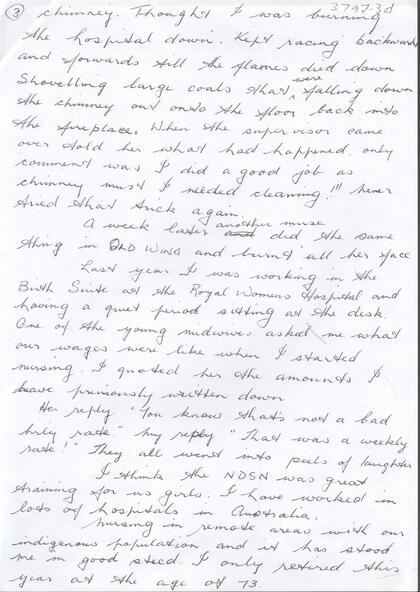 3797.3d
③ chimney. Thought I was burning
the hospital down. Kept racing backwards
and forwards till the flames died down
Shovelling large coals that were falling down
the chimney out onto the floor back into
the fireplace. When the supervisor came
over told her what had happened. only
comment was I did a good job as
chimney must I needed cleaning!!! never
tried that trick again.
A week later another nurse did the same
thing in OLD WING and burnt all her face
Last year I was working in the
Birth Suite at the Royal Womens Hospital and
having a quiet period sitting at the desk.
One of the young midwives asked me what
our wages were like when I started
nursing. I quoted her the amounts I
have previously written down
Her reply. "You know thats not a bad
hrly rate." my reply "That was a weekly
rate!" They all went into peels of laughter
I think the NDSN was great
training for us girls. I have worked in
lots of hospitals in Australia.
nursing in remote areas with our
indigenous population and it has stood
me in good steed. I only retired this
year at the age of 73.